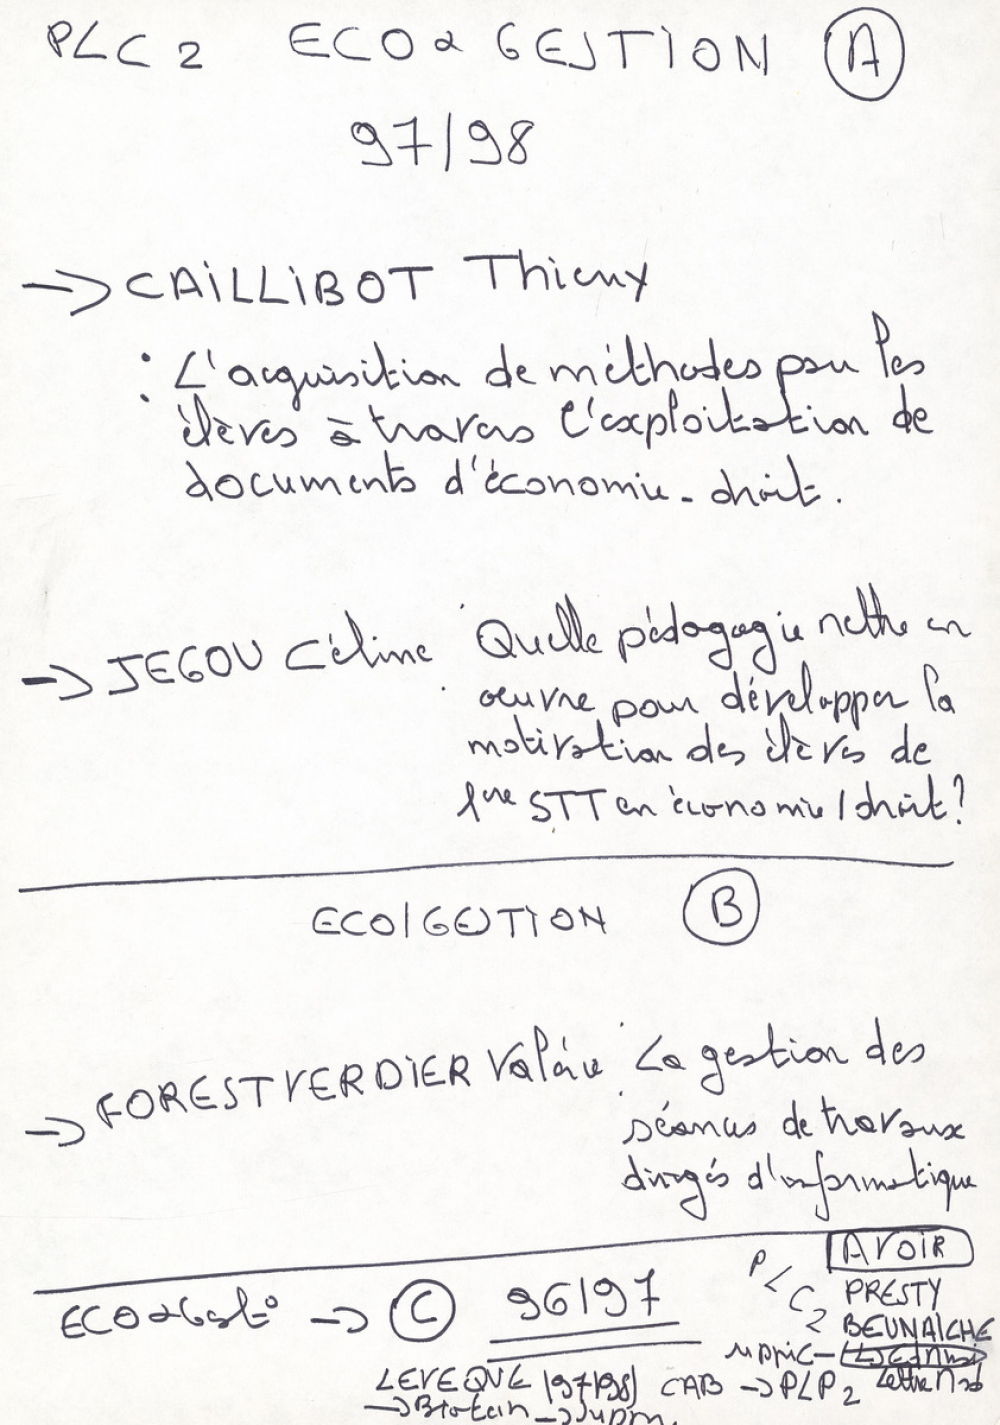 PLC 2 ECO & GESTION A
97/98
→ CAILLIBOT Thierry
: L'acquisition de méthodes pour les
élèves à travers l'exploitation de
documents d'économie-droit.
→ JEGOU Céline : Quelle pédagogie mettre en
œuvre pour développer la
motivation des élèves de
1ère STT en économie/droit?
ECO/GESTION B
→ FOREST VERDIER Valérie : La gestion des
séances de travaux
dirigés d'informatique
AVOIR
ECO & Gest° → C 96/97
PLC2 PRESTY
BEUNAICHE
LEVEQUE (97/98) CAB → PLP2